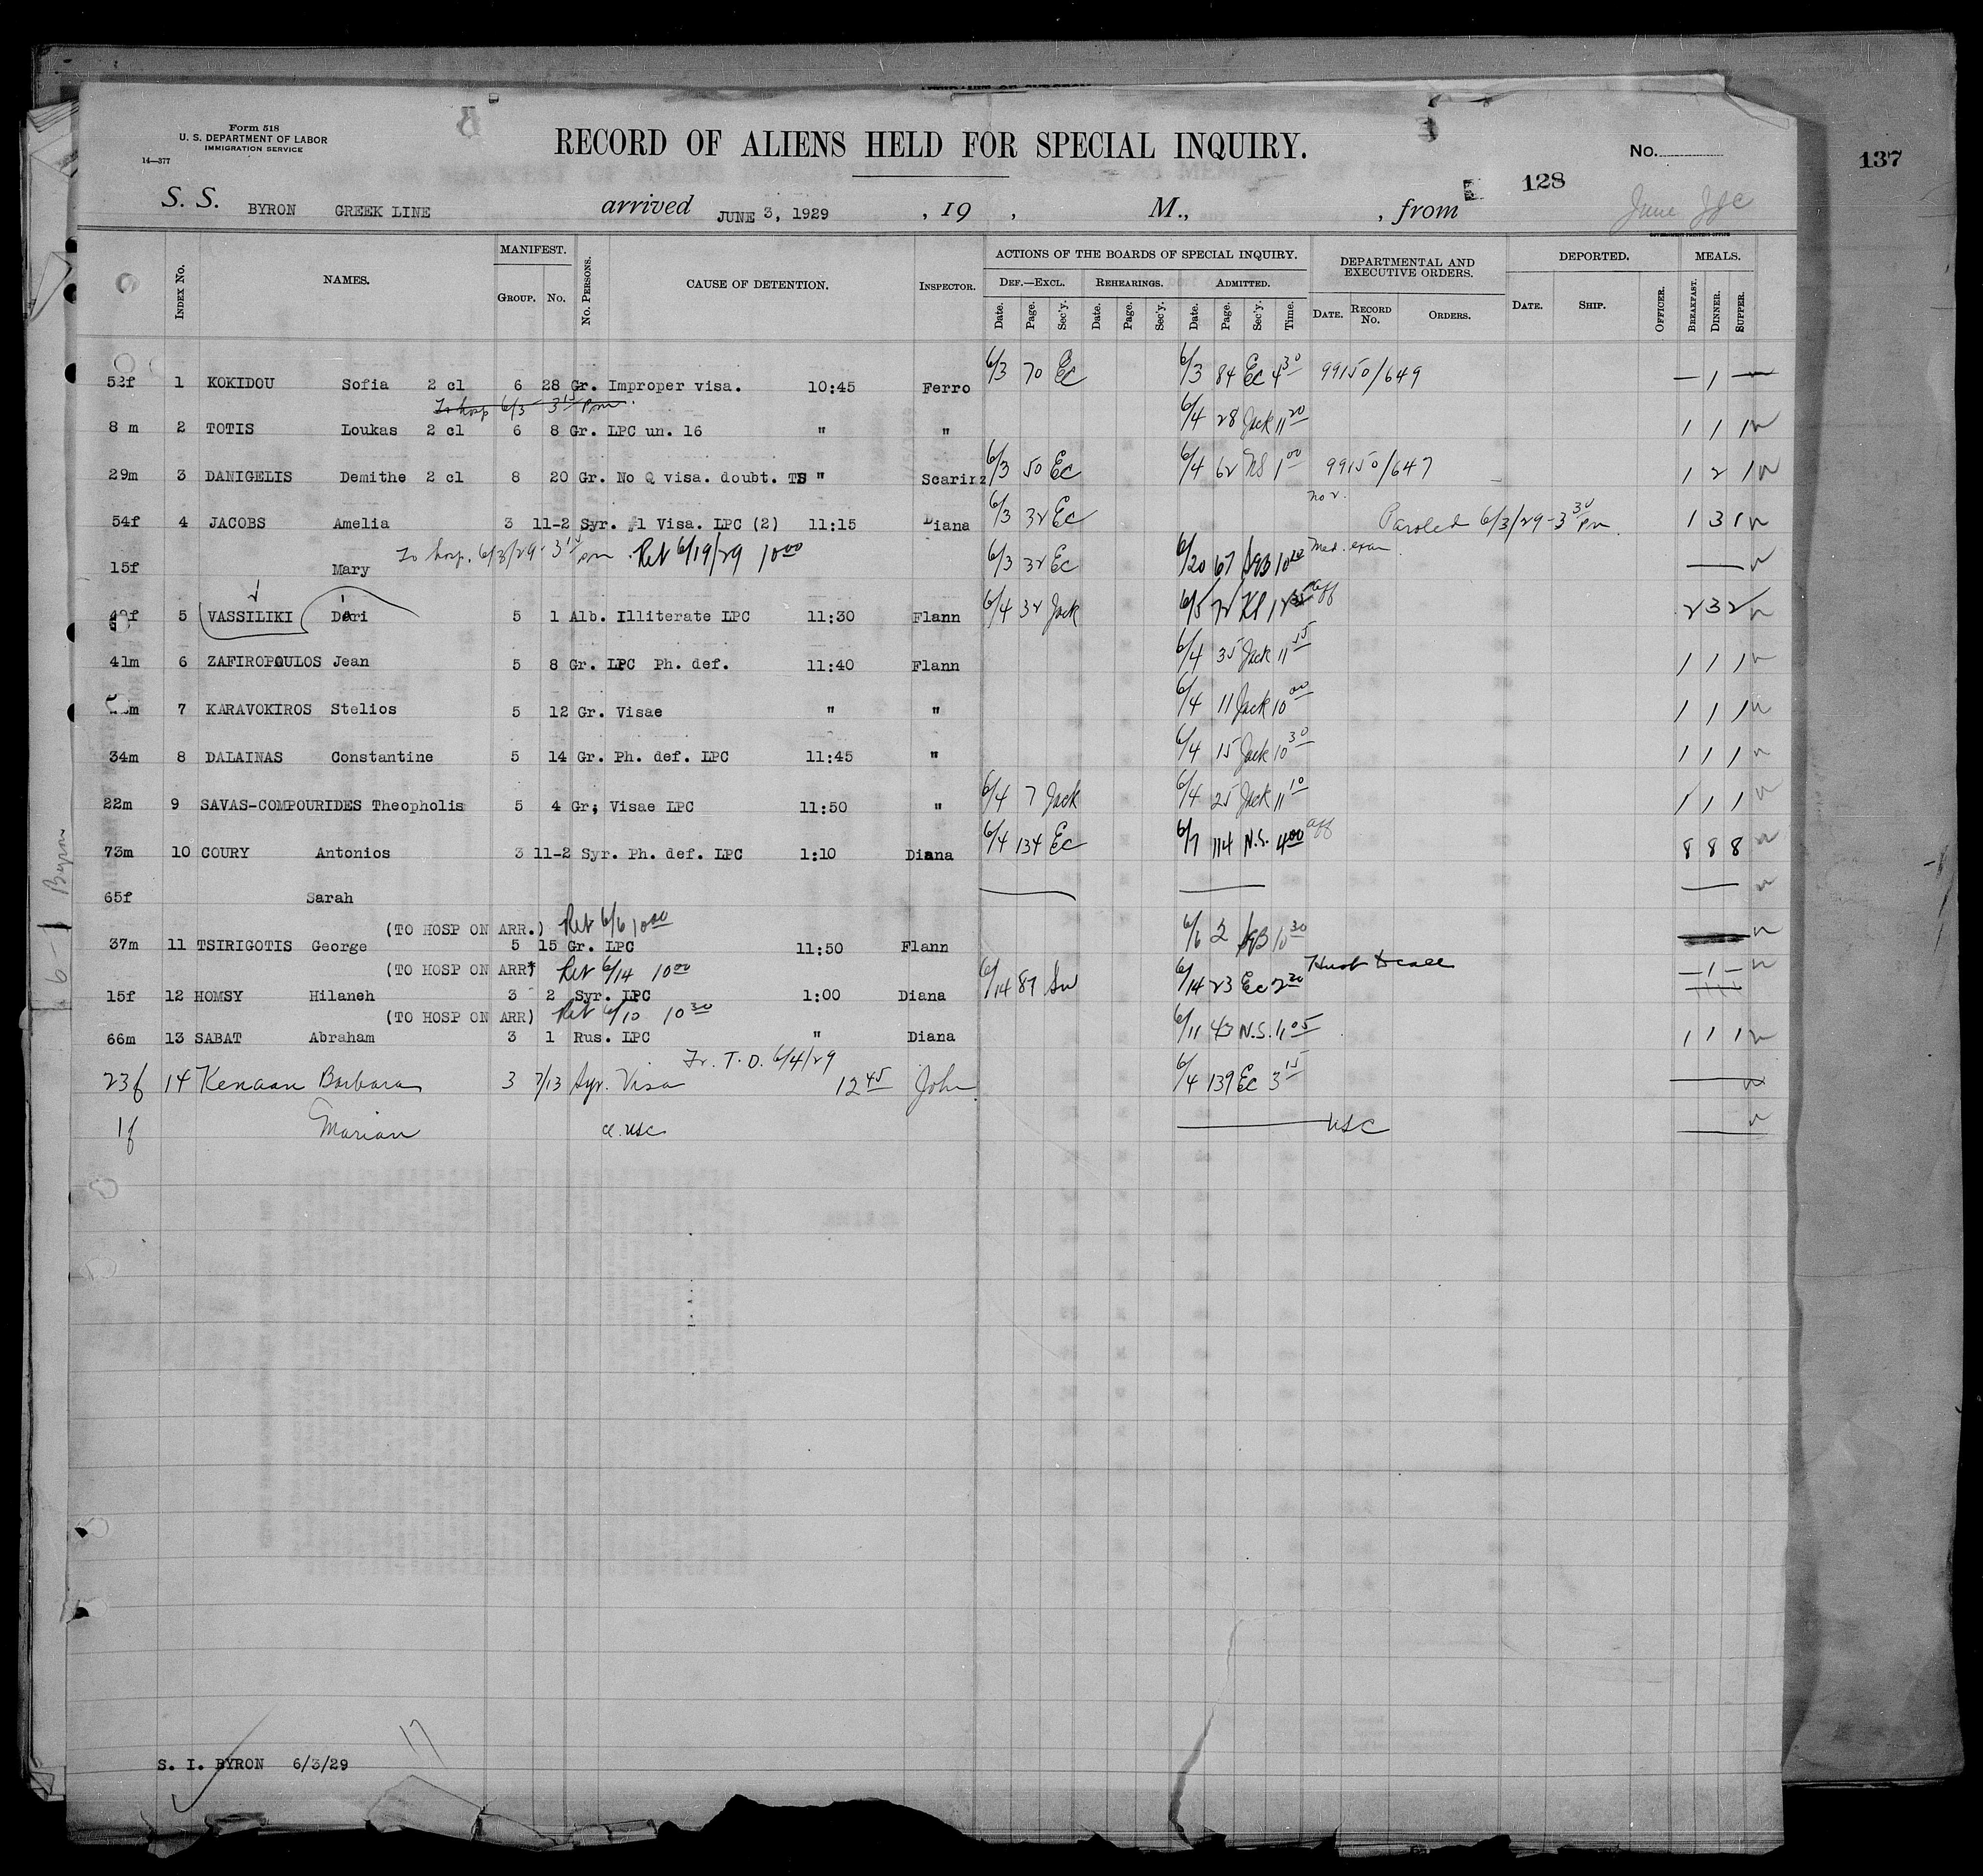 Form 518
U. S. DEPARTMENT OF LABOR
IMMIGRATION SERVICE
14—377
RECORD OF ALIENS HELD FOR SPECIAL INQUIRY.
No.
137
128
S. S. BYRON GREEK LINE arrived JUNE 3, 1929 , 19 , M., , from
June
GOVERNMENT PRINTING OFFICE
Index No. NAMES. MANIFEST. Group. No. No. Persons. CAUSE OF DETENTION. Inspector. ACTIONS OF THE BOARDS OF SPECIAL INQUIRY. DEPARTMENTAL AND EXECUTIVE ORDERS. DEPORTED. MEALS.
Def.—Excl. Rehearings. Admitted.
Date. Page. Sec'y. Date. Page. Sec'y. Date. Page. Sec'y. Time. Date. Record No. Orders. Date. Ship. Officer. Breakfast. Dinner. Supper.
52f 1 KOKIDOU Sofia 2 cl 6 28 Gr. Improper visa. 10:45 Ferro 6/3 70 Ec 6/3 84 Ec 4 30 99150/649 — 1 —
To hosp 6/3 3 15 pm.
8 m 2 TOTIS Loukas 2 cl 6 8 Gr. LPC un. 16 " " 6/4 28 Jack 11 20 1 1 1
29m 3 DANIGELIS Demithe 2 cl 8 20 Gr. No Q visa. doubt. TS " Scarinz 6/3 50 Ec 6/4 62 NS 1 00 99150/647 1 2 1
54f 4 JACOBS Amelia 3 11-2 Syr. #1 Visa. LPC (2) 11:15 Diana 6/3 32 Ec Paroled 6/3/29 - 3 30 pm 1 3 1
To hosp. 6/3/29 - 3 15 pm. Ret 6/19/29 10 00
15f Mary 6/3 32 Ec 6/20 67 Med. exam
5 VASSILIKI Dori 5 1 Alb. Illiterate LPC 11:30 Flann 6/4 32 Jack 6/5 72 aff 2 3 2
41m 6 ZAFIROPOULOS Jean 5 8 Gr. LPC Ph. def. 11:40 Flann 6/4 35 Jack 11 15 1 1 1
7 KARAVOKIROS Stelios 5 12 Gr. Visae " " 6/4 11 Jack 10 00 1 1 1
34m 8 DALAINAS Constantine 5 14 Gr. Ph. def. LPC 11:45 " 6/4 15 Jack 10 30 1 1 1
22m 9 SAVAS-COMPOURIDES Theopholis 5 4 Gr; Visae LPC 11:50 " 6/4 7 Jack 6/4 25 Jack 11 10 1 1 1
73m 10 COURY Antonios 3 11-2 Syr. Ph. def. LPC 1:10 Diana 6/4 134 Ec 6/7 114 N.S. 4 00 aff 8 8 8
65f Sarah
(TO HOSP ON ARR.) Ret 6/6 10 00
37m 11 TSIRIGOTIS George 5 15 Gr. LPC 11:50 Flann 6/6 2 10 30
(TO HOSP ON ARR) Ret 6/14 10 00
15f 12 HOMSY Hilaneh 3 2 Syr. LPC 1:00 Diana 6/14 87 6/14 23 Ec 2 30 Husb to call — 1 —
(TO HOSP ON ARR) Ret 6/10 10 30
66m 13 SABAT Abraham 3 1 Rus. LPC " Diana 6/11 43 N.S. 11 05 1 1 1
Fr. T. D. 6/4/29
23f 14 Kenaan Barbara 3 7/13 Syr. Visa 12 45 John 6/4 139 Ec 3 15
1f Marian cl. USC USC
6-1 Byron
17
S. I. BYRON 6/3/29